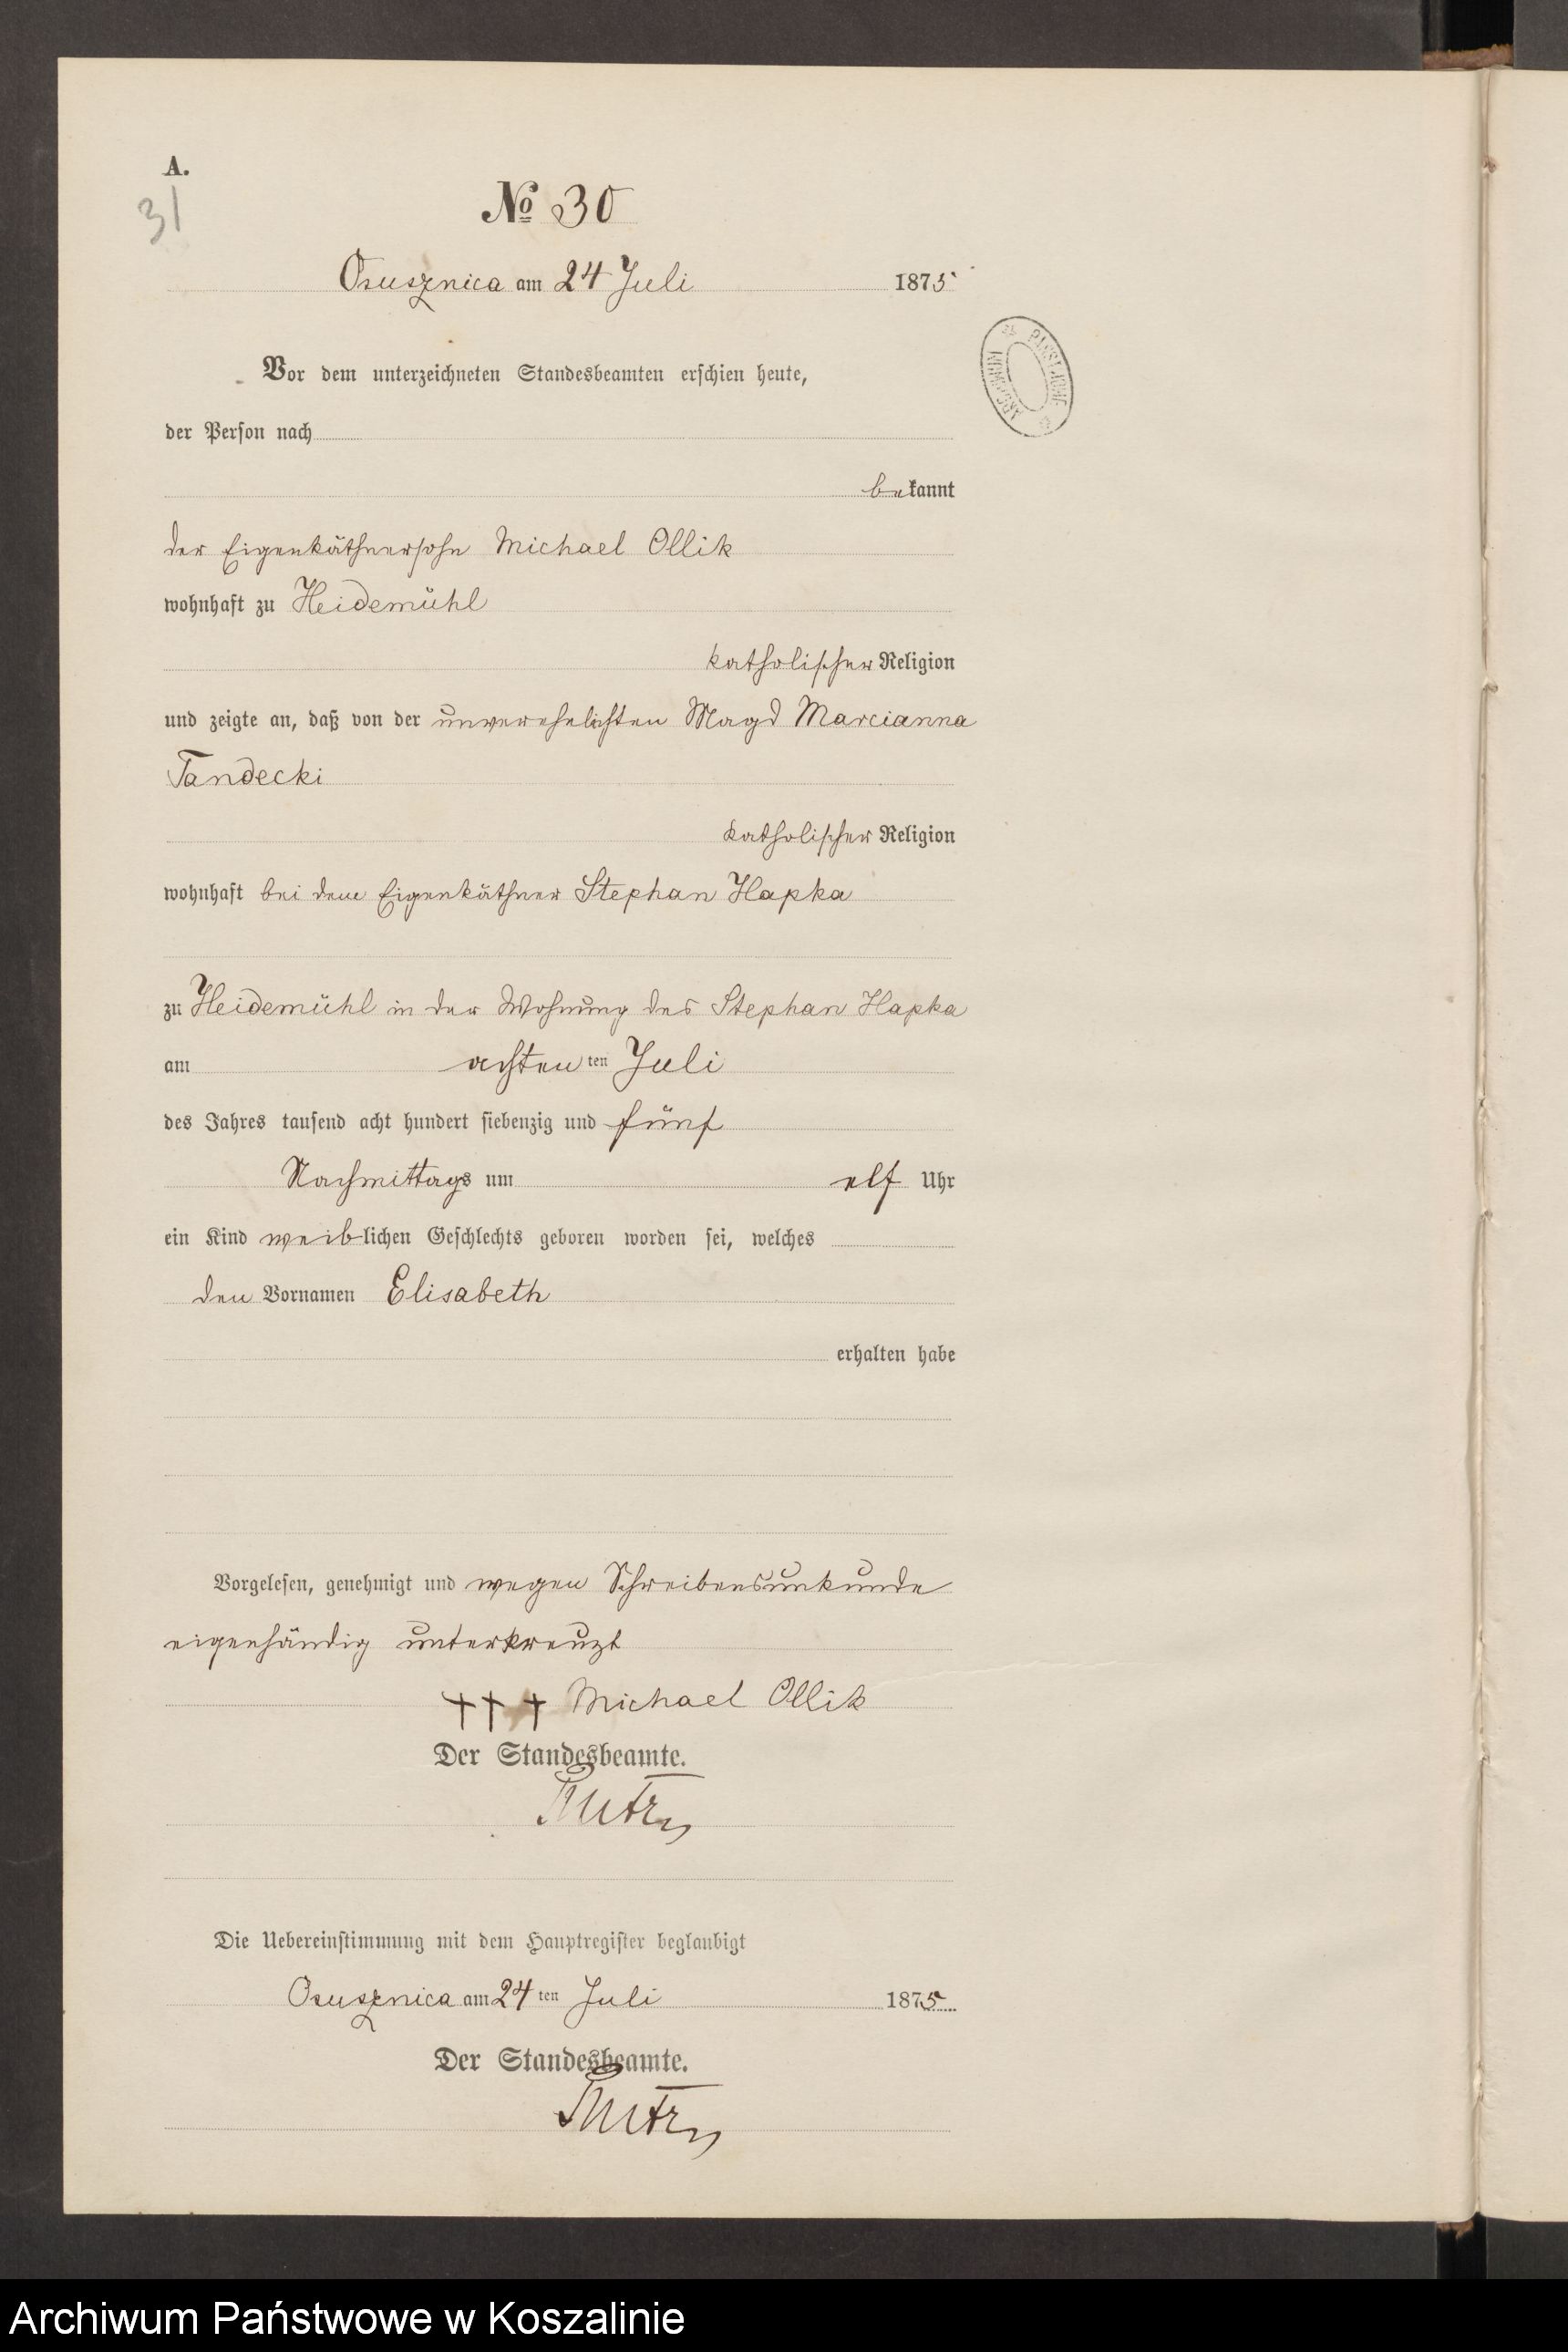 A.
31
No 30
Osusznica am 24 Juli 1875
Vor dem unterzeichneten Standesbeamten erschien heute,
der Person nach
bekannt
der Eigenkäthnersohn Michael Ollik
wohnhaft zu Heidemühl
katholischer Religion
und zeigte an, daß von der unverehelichten Magd Marcianna
Tandecki
katholischer Religion
wohnhaft bei dem Eigenkäthner Stephan Hapka
zu Heidemühl in der Wohnung des Stephan Hapka
am achten ten Juli
des Jahres tausend acht hundert siebenzig und fünf
Nachmittags um elf Uhr
ein Kind weiblichen Geschlechts geboren worden sei, welches
den Vornamen Elisabeth
erhalten habe
Vorgelesen, genehmigt und wegen Schreibensunkunde
eigenhändig unterkreuzt
††† Michael Ollik
Der Standesbeamte.
Die Uebereinstimmung mit dem Hauptregister beglaubigt
Osusznica am 24 ten Juli 1875
Der Standesbeamte.
Archiwum Państwowe w Koszalinie